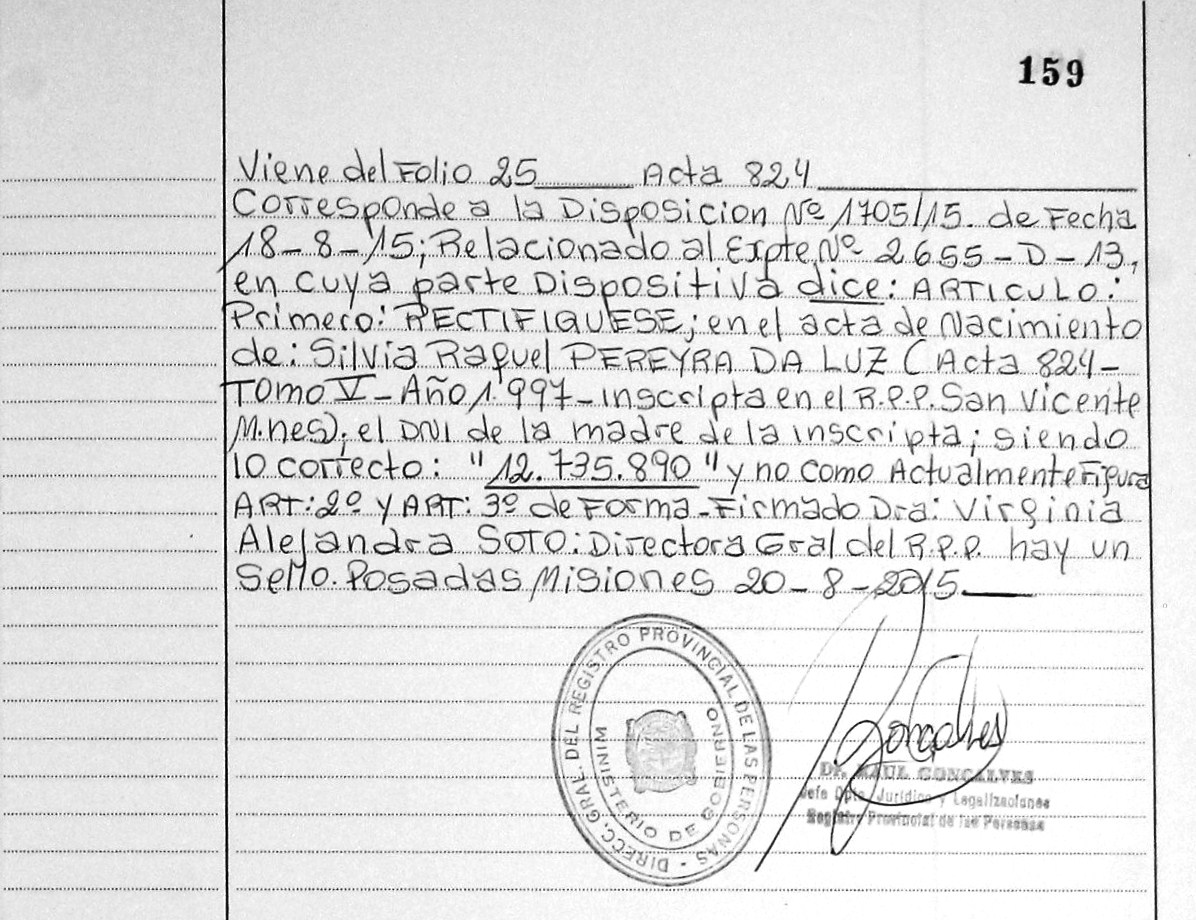 159
Viene del Folio 25 Acta 824
Corresponde a la Disposicion Nº 1705/15. de Fecha
18-8-15; Relacionado al Expte Nº 2655-D-13,
en cuya parte Dispositiva dice: ARTICULO:
Primero: RECTIFIQUESE; en el acta de Nacimiento
de: Silvia Raquel PEREYRA DA LUZ (Acta 824-
TOMO V-Año 1.997-inscripta en el R.P.P. San Vicente
M.nes); el DNI de la madre de la inscripta; siendo
lo correcto: "12.735.890" y no como Actualmente Figura
ART: 2º Y ART: 3º de Forma-Firmado Dra: Virginia
Alejandra SOTO: Directora Gral del R.P.P. hay un
Sello. Posadas Misiones 20-8-2015.
DIRECC. GRAL. DEL REGISTRO PROVINCIAL DE LAS PERSONAS -
MINISTERIO DE GOBIERNO
Goncalves
DR. RAUL GONCALVES
Jefe Dpto. Jurídico y Legalizaciones
Registro Provincial de las Personas